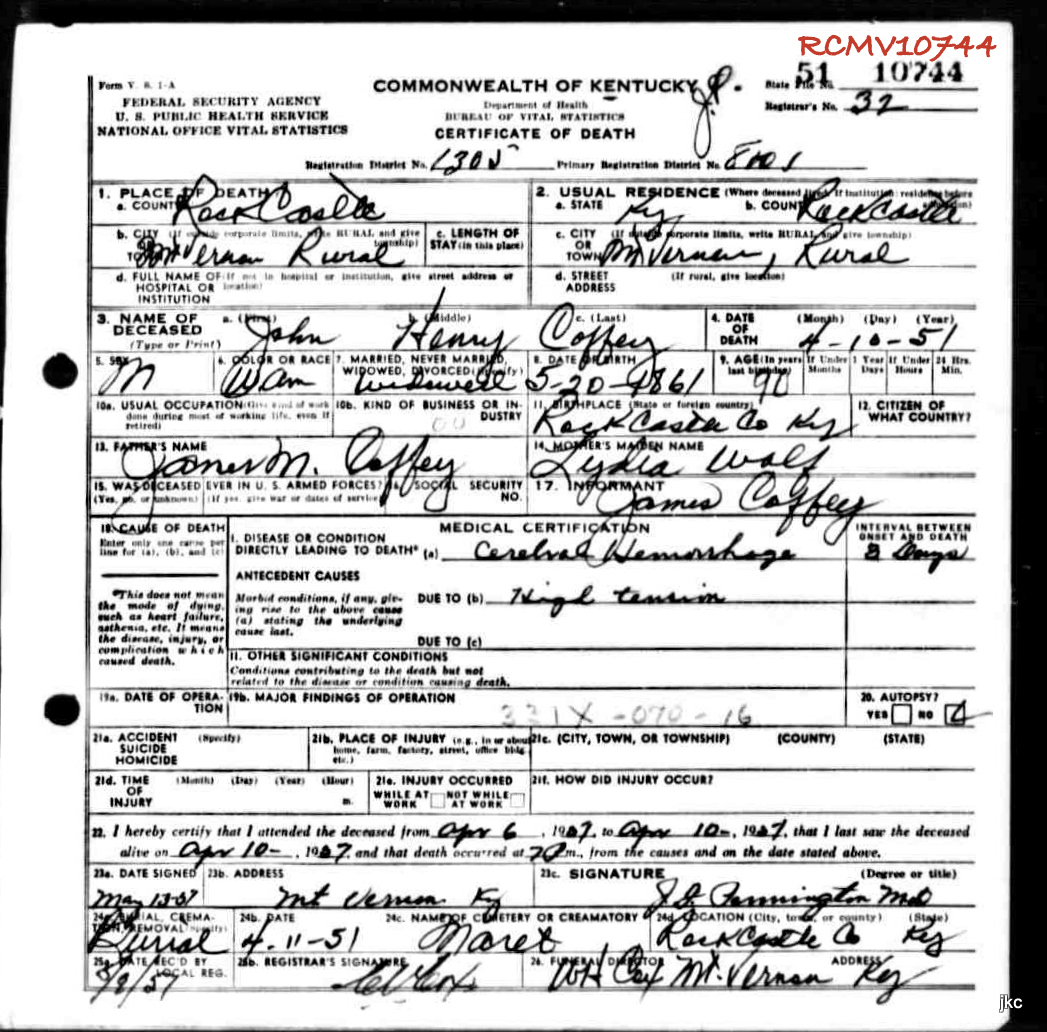 RCMV10744
Form V. S. 1-A
FEDERAL SECURITY AGENCY
U. S. PUBLIC HEALTH SERVICE
NATIONAL OFFICE VITAL STATISTICS
COMMONWEALTH OF KENTUCKY
Department of Health
BUREAU OF VITAL STATISTICS
CERTIFICATE OF DEATH
State File No. 51 10744
Registrar's No. 32
Registration District No. 1305 Primary Registration District No.
1. PLACE OF DEATH
a. COUNTY RockCastle
2. USUAL RESIDENCE (Where deceased lived. If institution: residence before admission)
a. STATE Ky b. COUNTY RockCastle
b. CITY (If outside corporate limits, write RURAL and give township)
OR TOWN Mt Vernon Rural
c. LENGTH OF STAY (in this place)
c. CITY (If outside corporate limits, write RURAL and give township)
OR TOWN Mt Vernon, Rural
d. FULL NAME OF (If not in hospital or institution, give street address or location)
HOSPITAL OR INSTITUTION
d. STREET ADDRESS (If rural, give location)
3. NAME OF DECEASED (Type or Print)
a. (First) b. (Middle) c. (Last)
John Henry Coffey
4. DATE OF DEATH (Month) (Day) (Year)
4-10-51
5. SEX M
6. COLOR OR RACE
7. MARRIED, NEVER MARRIED, WIDOWED, DIVORCED (Specify)
8. DATE OF BIRTH 5-20-1861
9. AGE (In years last birthday) 90
If Under 1 Year Months Days
If Under 24 Hrs. Hours Min.
10a. USUAL OCCUPATION (Give kind of work done during most of working life, even if retired)
10b. KIND OF BUSINESS OR INDUSTRY
11. BIRTHPLACE (State or foreign country)
RockCastle Co Ky
12. CITIZEN OF WHAT COUNTRY?
13. FATHER'S NAME
James M. Coffey
14. MOTHER'S MAIDEN NAME
Lydia Wolf
15. WAS DECEASED EVER IN U. S. ARMED FORCES?
(Yes, no, or unknown) (If yes, give war or dates of service)
16. SOCIAL SECURITY NO.
17. INFORMANT
James Coffey
18. CAUSE OF DEATH
Enter only one cause per line for (a), (b), and (c)
*This does not mean the mode of dying, such as heart failure, asthenia, etc. It means the disease, injury, or complication which caused death.
MEDICAL CERTIFICATION
INTERVAL BETWEEN ONSET AND DEATH
I. DISEASE OR CONDITION
DIRECTLY LEADING TO DEATH* (a) Cerebral Hemorrhage Days
ANTECEDENT CAUSES
Morbid conditions, if any, giving rise to the above cause (a) stating the underlying cause last.
DUE TO (b) High tension
DUE TO (c)
II. OTHER SIGNIFICANT CONDITIONS
Conditions contributing to the death but not related to the disease or condition causing death.
19a. DATE OF OPERATION
19b. MAJOR FINDINGS OF OPERATION
331X-070-16
20. AUTOPSY?
YES NO
21a. ACCIDENT SUICIDE HOMICIDE (Specify)
21b. PLACE OF INJURY (e.g., in or about home, farm, factory, street, office bldg., etc.)
21c. (CITY, TOWN, OR TOWNSHIP) (COUNTY) (STATE)
21d. TIME OF INJURY (Month) (Day) (Year) (Hour) m.
21e. INJURY OCCURRED
WHILE AT WORK NOT WHILE AT WORK
21f. HOW DID INJURY OCCUR?
22. I hereby certify that I attended the deceased from Apr 6, to Apr 10-, that I last saw the deceased
alive on Apr 10-, and that death occurred at m., from the causes and on the date stated above.
23a. DATE SIGNED
23b. ADDRESS
Mt Vernon Ky
23c. SIGNATURE (Degree or title)
24a. BURIAL, CREMATION, REMOVAL (Specify)
Burial
24b. DATE
4-11-51
24c. NAME OF CEMETERY OR CREAMATORY
Maret
24d. LOCATION (City, town, or county) (State)
RockCastle Co Ky
25a. DATE REC'D BY LOCAL REG.
25b. REGISTRAR'S SIGNATURE
26. FUNERAL DIRECTOR ADDRESS
WH Cox Mt. Vernon Key
jkc